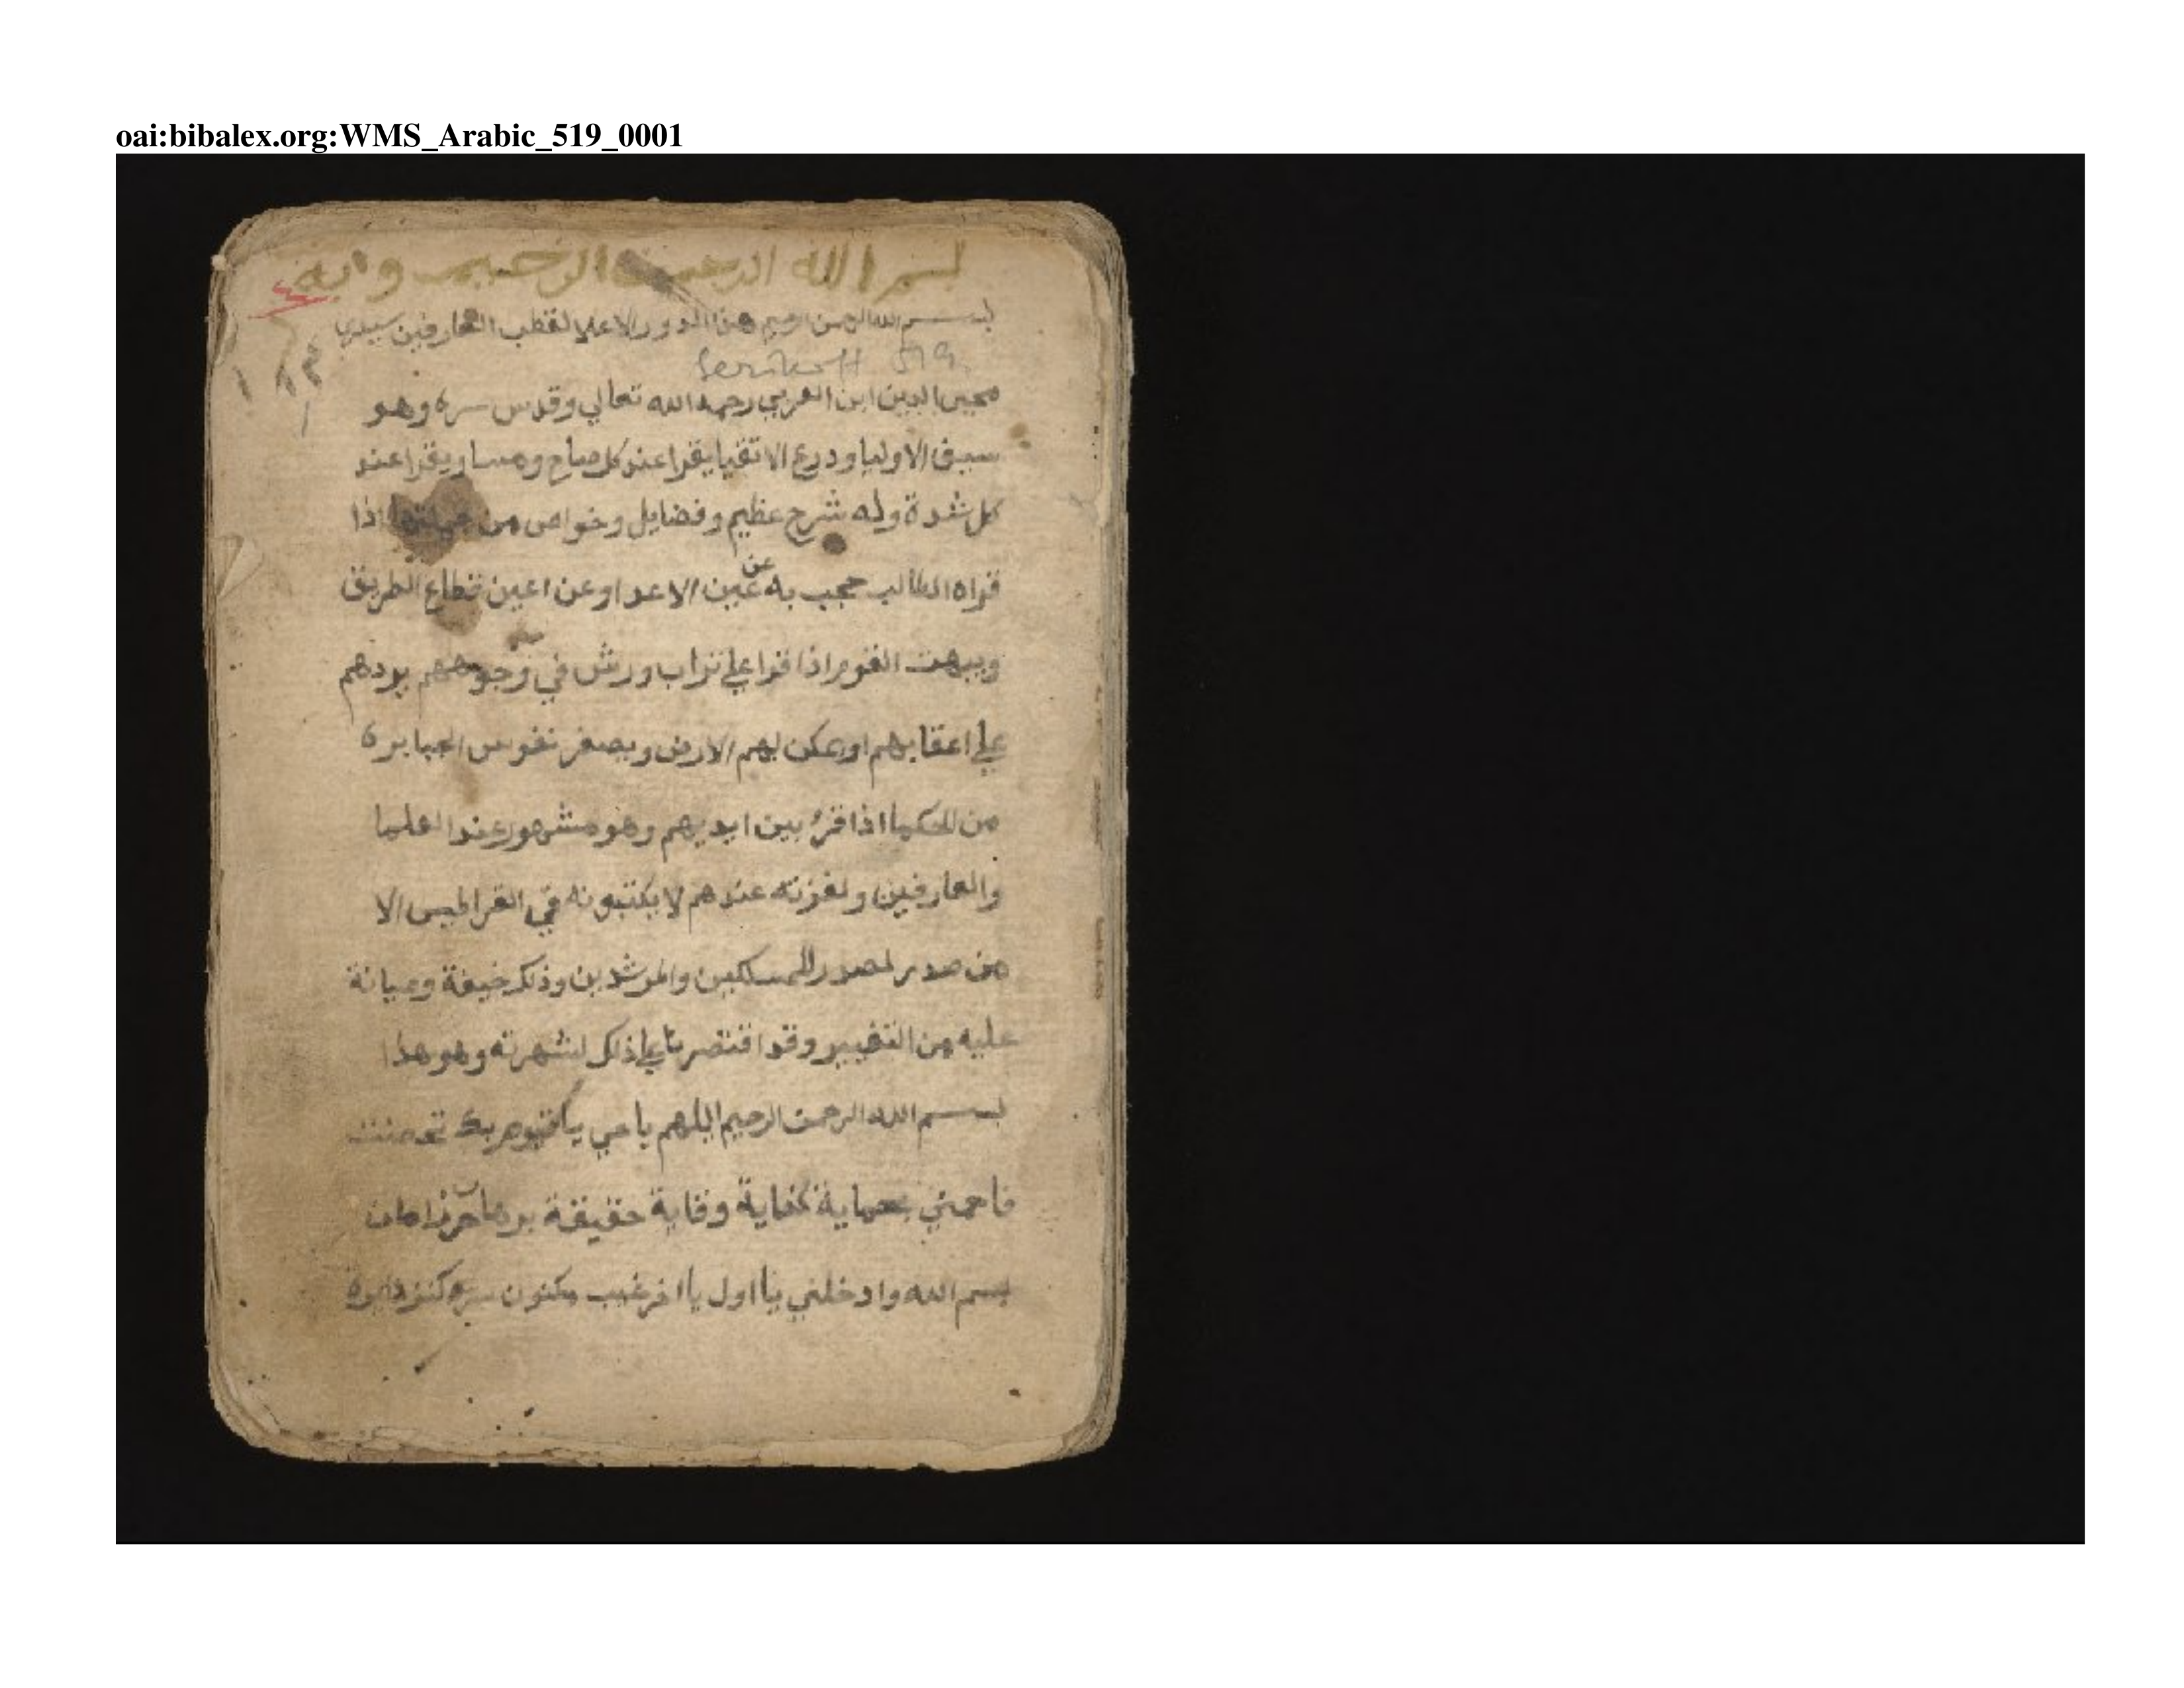 oai:bibalex.org:WMS_Arabic_519_0001
بسم الله الرحمن الرحيم وابه
بسم الله الرحمن الرحيم هذا الدور الاعلا لقطب العارفين سيدي
Serikoff 519
محيى الدين ابن العربي رحمه الله تعالي وقدس سره وهو
سيف الاوليا ودرع الاتقيا يقرا عند كل صباح ومسا ويقرا عند
كل شدة وله شرح عظيم وفضايل وخواص من جملتها اذا
قراه الطالب حجب به عن عين الاعدا وعن اعين قطاع الطريق
ويبهت القوم اذا قرا علي تراب ورش في وجوههم يردهم
علي اعقابهم او لهم الارض ويصغر نفوس الجبابرة
من الحكما اذا قرئ بين ايديهم وهو مشهور عند العلما
والعارفين ولعزته عندهم لا يكتبونه في القراطيس الا
من صدر لصدر للمسلكين والمرشدين وذلك خيفة وصيانة
عليه من التغيير وقد اقتصرنا علي ذلك لشهرته وهو هذا
بسم الله الرحمن الرحيم اللهم يا حي يا قيوم بك تحصنت
فاحمني بحماية كفاية وقاية حقيقة برهان حرز امان
بسم الله وادخلني يا اول يا اخر غيب مكنون سر كنز دايرة